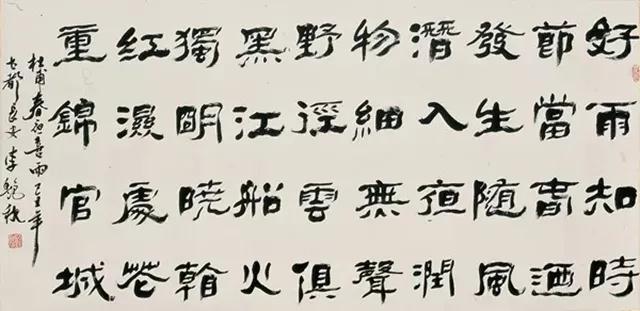 好雨知時
節當旾迺
發生随風
潛入夜潤
物細無聲
野徑雲俱
黑江船火
獨明曉看
紅濕處花
重錦官城
杜甫春夜喜雨己丑年
古都長安李